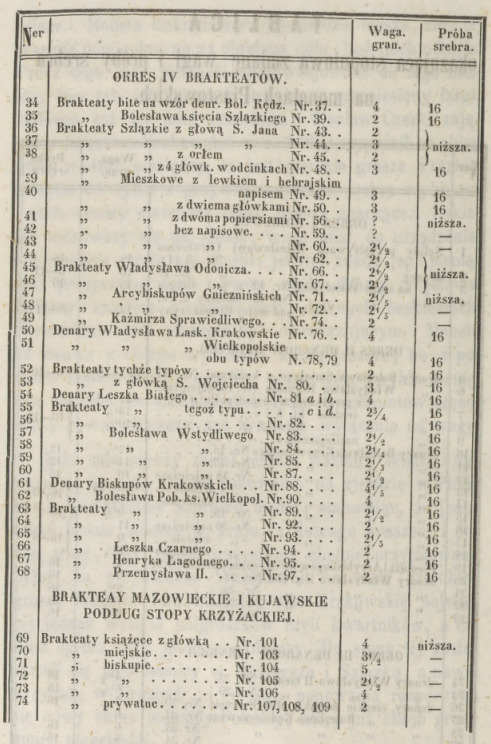 Ner Waga. gran. Próba srebra.
OKRES IV BRAKTEATÓW.
34 Brakteaty bite na wzór denr. Bol. Kędz. Nr. 37. . 4 16
35 „ Bolesława księcia Szlązkiego Nr. 39. . 2 16
36 Brakteaty Szlązkie z głową Ś. Jana Nr. 43. . 2
37 „ „ „ „ Nr. 44. . 3 niższa.
38 „ „ z orłem Nr. 45. . 2
„ „ z 4 główk. w odcinkach Nr. 48. . 3 16
39 „ Mieszkowe z lewkiem i hebrajskim
40 napisem Nr. 49. . 3 16
„ „ z dwiema główkami Nr. 50. . 3 16
41 „ „ z dwóma popiersiami Nr. 56. . ? niższa.
42 „ „ bez napisowe. . . . Nr. 59. . ? —
43 „ „ „ Nr. 60. . 2½ —
44 „ „ „ Nr. 62. . 2½
45 Brakteaty Władysława Odonicza. . . . Nr. 66. . 2½ niższa.
46 „ „ „ Nr. 67. . 2½
47 „ Arcybiskupów Gnieznińskich Nr. 71. . 2⅕ niższa.
48 „ „ „ Nr. 72. . 2⅕ —
49 „ Kaźmirza Sprawiedliwego. . . Nr. 74. . 2 —
50 Denary Władysława Lask. Krakowskie Nr. 76. . 4 16
51 „ „ „ Wielkopolskie
obu typów N. 78,79 4 16
52 Brakteaty tychże typów . . . . . . . . . . 2 16
53 „ z główką Ś. Wojciecha Nr. 80. . . . 3 16
54 Denary Leszka Białego . . . . . . . Nr. 81 a i b. 4 16
55 Brakteaty „ tegoż typu . . . . . c i d. 2¾ 16
56 „ „ . . . . . . . Nr. 82. . . . 2 16
57 „ Bolesława Wstydliwego Nr. 83. . . . 2½ 16
58 „ „ „ Nr. 84. . . . 2¼ 16
59 „ „ „ Nr. 85. . . . 2⅓ 16
60 „ „ „ Nr. 87. . . . 2½ 16
61 Denary Biskupów Krakowskich . . Nr. 88. . . . 4⅕ 16
62 „ Bolesława Pob. ks. Wielkopol. Nr. 90. . . . 4 16
63 Brakteaty „ „ Nr. 89. . . . 2½ 16
64 „ „ „ Nr. 92. . . . 2 16
65 „ „ „ Nr. 93. . . . 2⅕ 16
66 „ Leszka Czarnego . . . . . Nr. 94. . . . 2 16
67 „ Henryka Łagodnego. . . Nr. 95. . . . 2 16
68 „ Przemysława II. . . . . . Nr. 97. . . . 2 16
BRAKTEAY MAZOWIECKIE I KUJAWSKIE
PODŁUG STOPY KRZYŻACKIEJ.
69 Brakteaty książęce z główką . . Nr. 101 4 niższa.
70 „ miejskie. . . . . . . . Nr. 103 3½ —
71 „ biskupie. . . . . . . . Nr. 104 5 —
72 „ „ . . . . . . . . Nr. 105 2½ —
73 „ „ . . . . . . . . Nr. 106 4 —
74 „ prywatne . . . . . . . Nr. 107, 108, 109 2 —